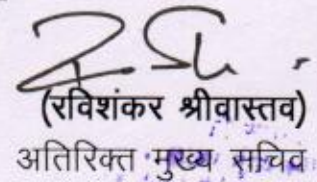 (रविशंकर श्रीवास्तव)
अतिरिक्त मुख्य सचिव